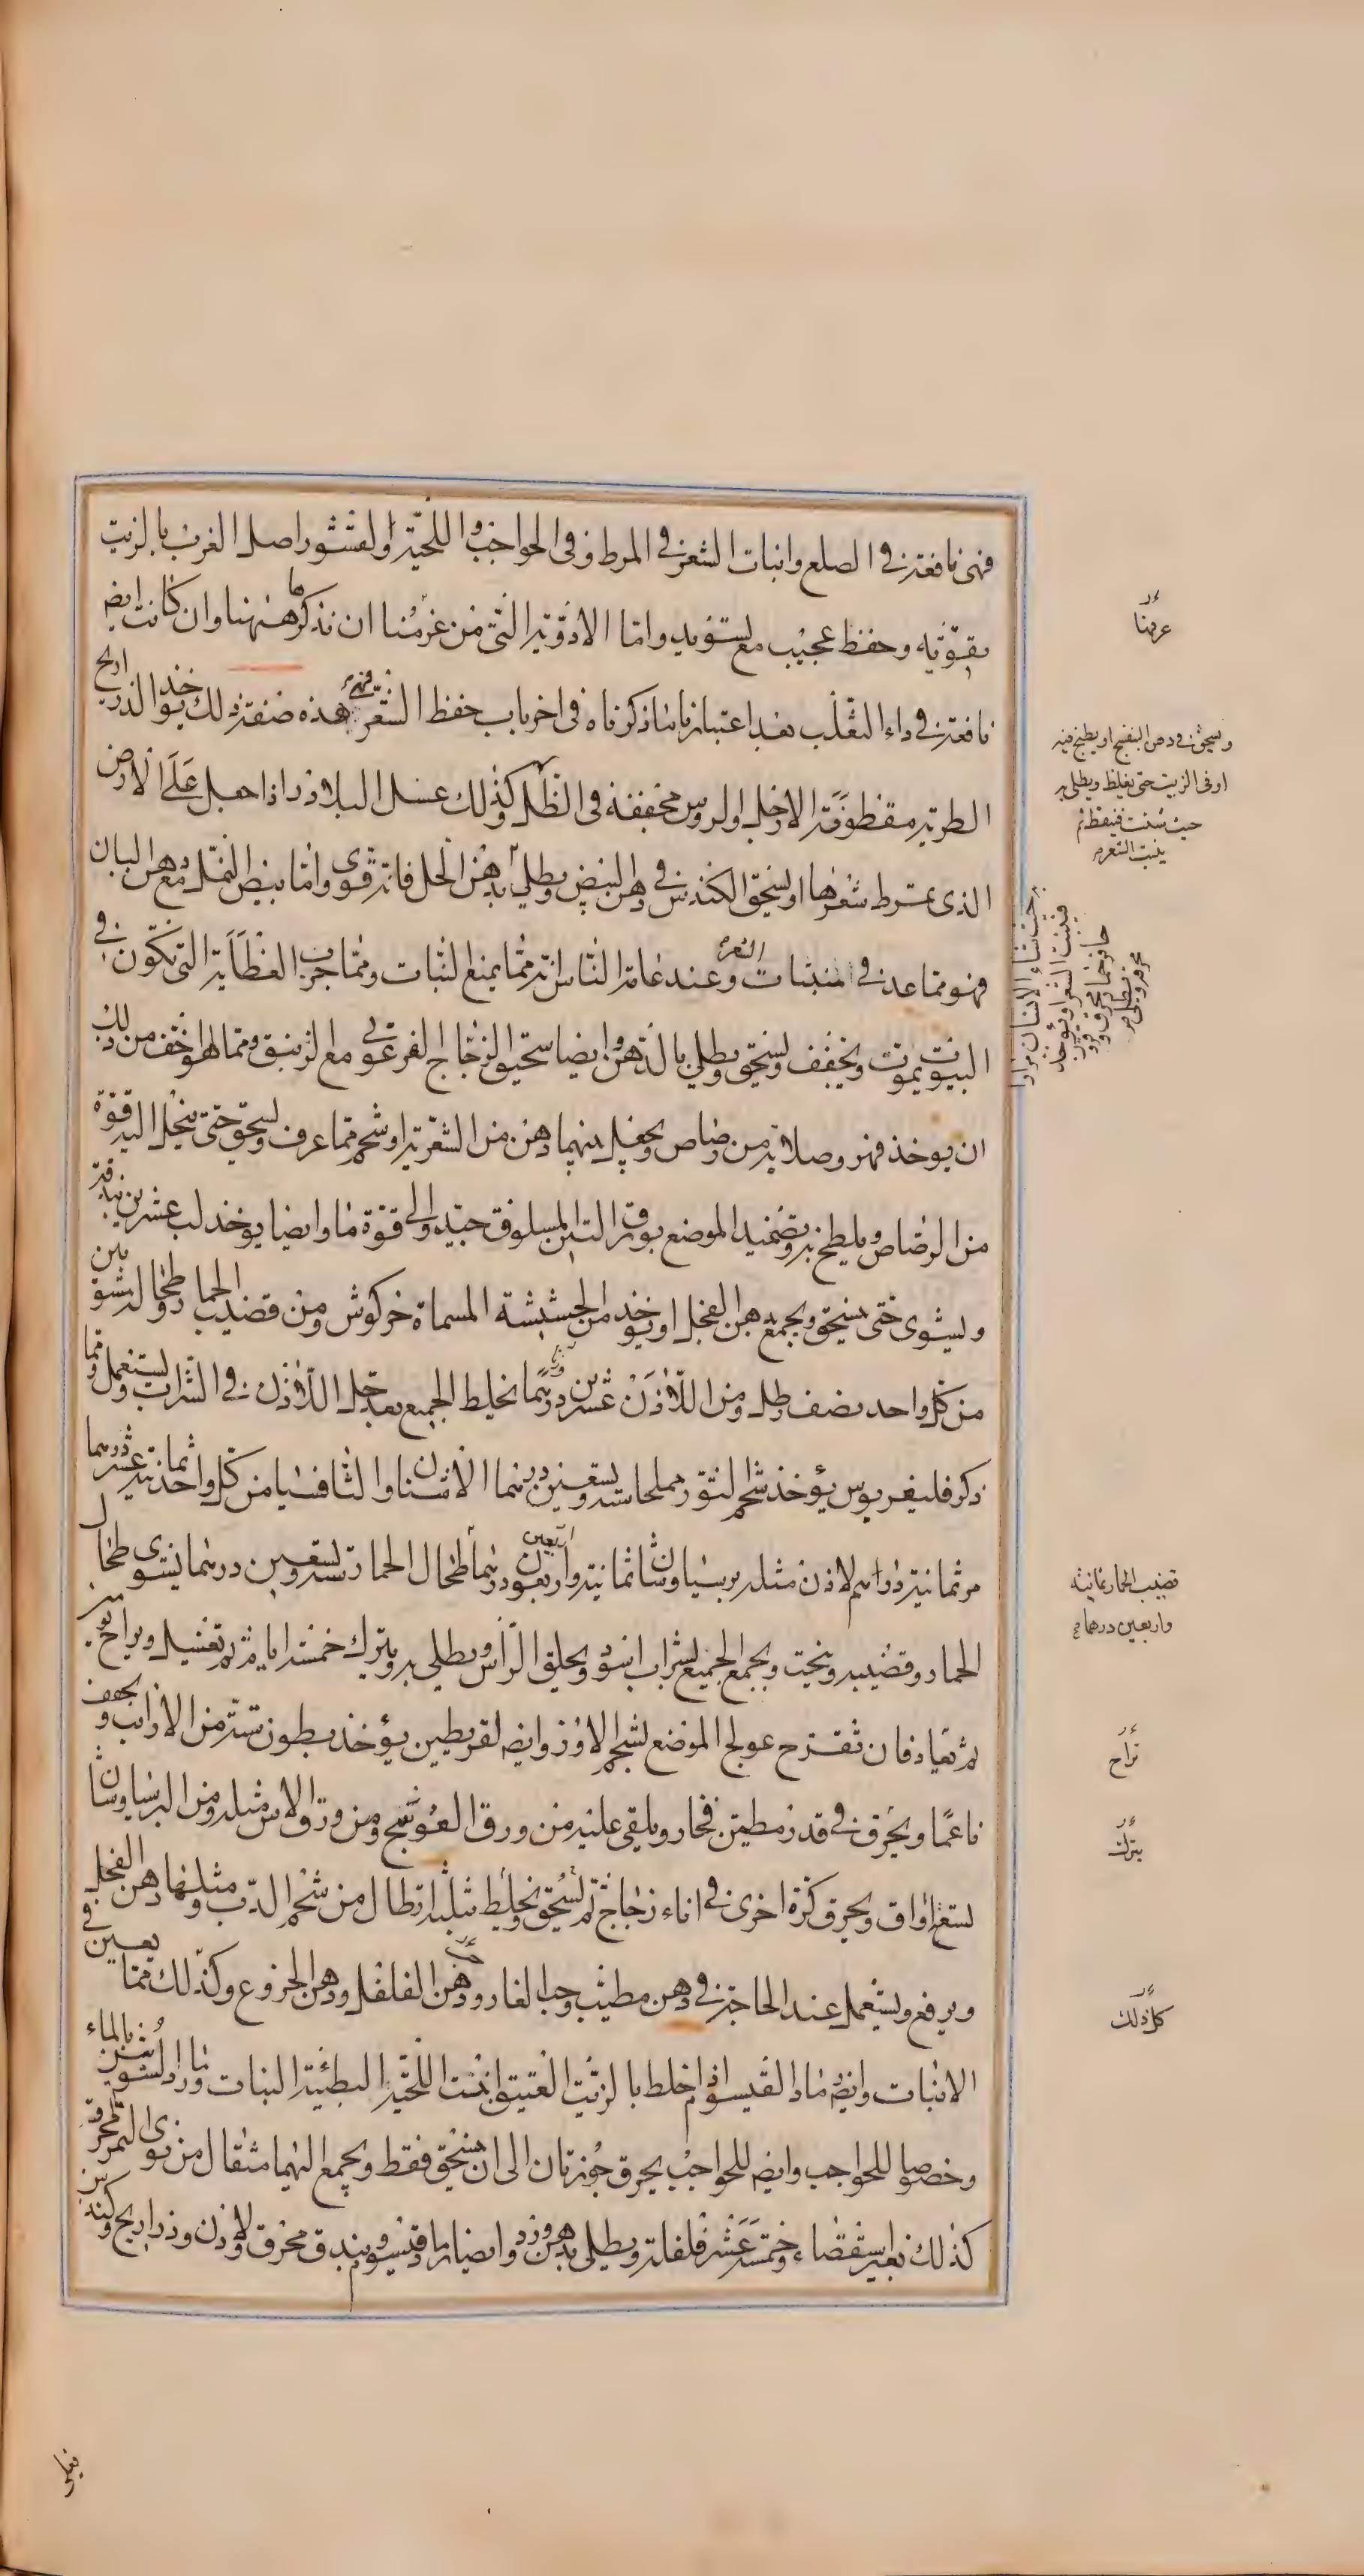 فهى نافعة فى الصلع وانبات الشعر فى المرط وفى الحواجب واللحية ولقشور اصل الغرب بالزيت
تقوية وحفظ عجيب مع تسويد واما الادوية التى من غرضنا ان نذكرها ههنا وان كانت ايضا
نافعة فى داء الثعلب بعد اعتبار ما ذكرناه فى اخر باب حفظ الشعر فهى هذه صفة ذلك يوخذ الذراريح
الطرية مقطوفة الارجل والروس مجففة فى الظل وكذلك عسل البلاذر اذا جعل على الارض
الذى يمرط شعرها او يسحق الكندس فى دهن البيض ويطلى بدهن الخل فانه قوى واما بيض النمل مع دهن البان
فهو مما عد فى المنبتات الشعر وعند عامة الناس انه مما يمنع النبات ومما جرب العظاية التى تكون فى
البيوت تموت ويجفف ويسحق ويطلى بالدهن وايضا سحيق الزجاج الفرعونى مع الزنبق ومما هو اخف من ذلك
ان يوخذ فهر وصلاية من رصاص ويجعل بينهما دهن من الشعرية او شحم مما عرف ويسحق حتى ينحل اليه قوة
من الرصاص ويلطخ به وتضميد الموضع بورق التين المسلوق جيد والى قوة ما وايضا يوخذ لب عشرين بندقة
ويشوى حتى ينسحق ويجمع بدهن الفجل او يوخذ من الحشيشة المسماة خركوش ومن قضيب الحمار وطحاله المشويين
من كل واحد نصف رطل ومن اللاذن عشرين درهما يخلط الجميع بعد حل اللاذن فى الشراب ويستعمل ومما
ذكر فليغريوس يؤخذ شحم الثور مملحا ستة وتسعين درهما الاشنان والثافسيا من كل واحد ثمانية عشر درهما
مر ثمانية دراهم لاذن مثله برسياوشان ثمانية واربعون درهما طحال الحمار ستة وتسعين درهما يشوى طحال
الحمار وقضيبه وينحت ويجمع الجميع بشراب اسود ويحلق الراس ويطلى به ويترك خمسة ايام ثم تغسيل ويراح يومين
ثم تعاد فان تقرح عولج الموضع بشحم الاوز وايضا لقريطين يؤخذ بطون ستة من الارانب ويجفف
ناعما ويحرق فى قدر مطين فخار ويلقى عليه من ورق العوسج ومن ورق الاس مثله ومن البرسياوشان
تسع اواق ويحرق كرة اخرى فى اناء زجاج ثم يسحق ويخلط بثلثة ارطال من شحم الدب ومثلها دهن الفجل
ويرفع ويستعمل عند الحاجة فى دهن مطيب وحب الغار ودهن الفلفل ودهن الخروع وكذلك مما يعين فى
الانبات وايضا رماد القيسوم اذا خلط بالزيت العتيق انبت اللحية البطيئة النبات بالماء
وخصوصا للحواجب وايضا للحواجب يحرق جوزتان الى ان ينسحق فقط ويجمع اليهما مثقال من نوى التمر المحرق
كذلك بغير استقصاء وخمسة عشر فلفلة ويطلى بدهن ورد وايضا رماد قيسوم وبندق محرق ولاذن وذراريح وكندس
عرضنا
ويسحق فى دهن البنفسج او يطبخ فيه
او فى الزيت حتى يغلظ ويطلى به
حيث شئت فينفط ثم
ينبت الشعر
حيث شاء الانسان
فينبت الشعر او يؤخذ
قضيب الحمار ثمانية
واربعين درهما
تراح
يترك
كل ذلك
فيطلى